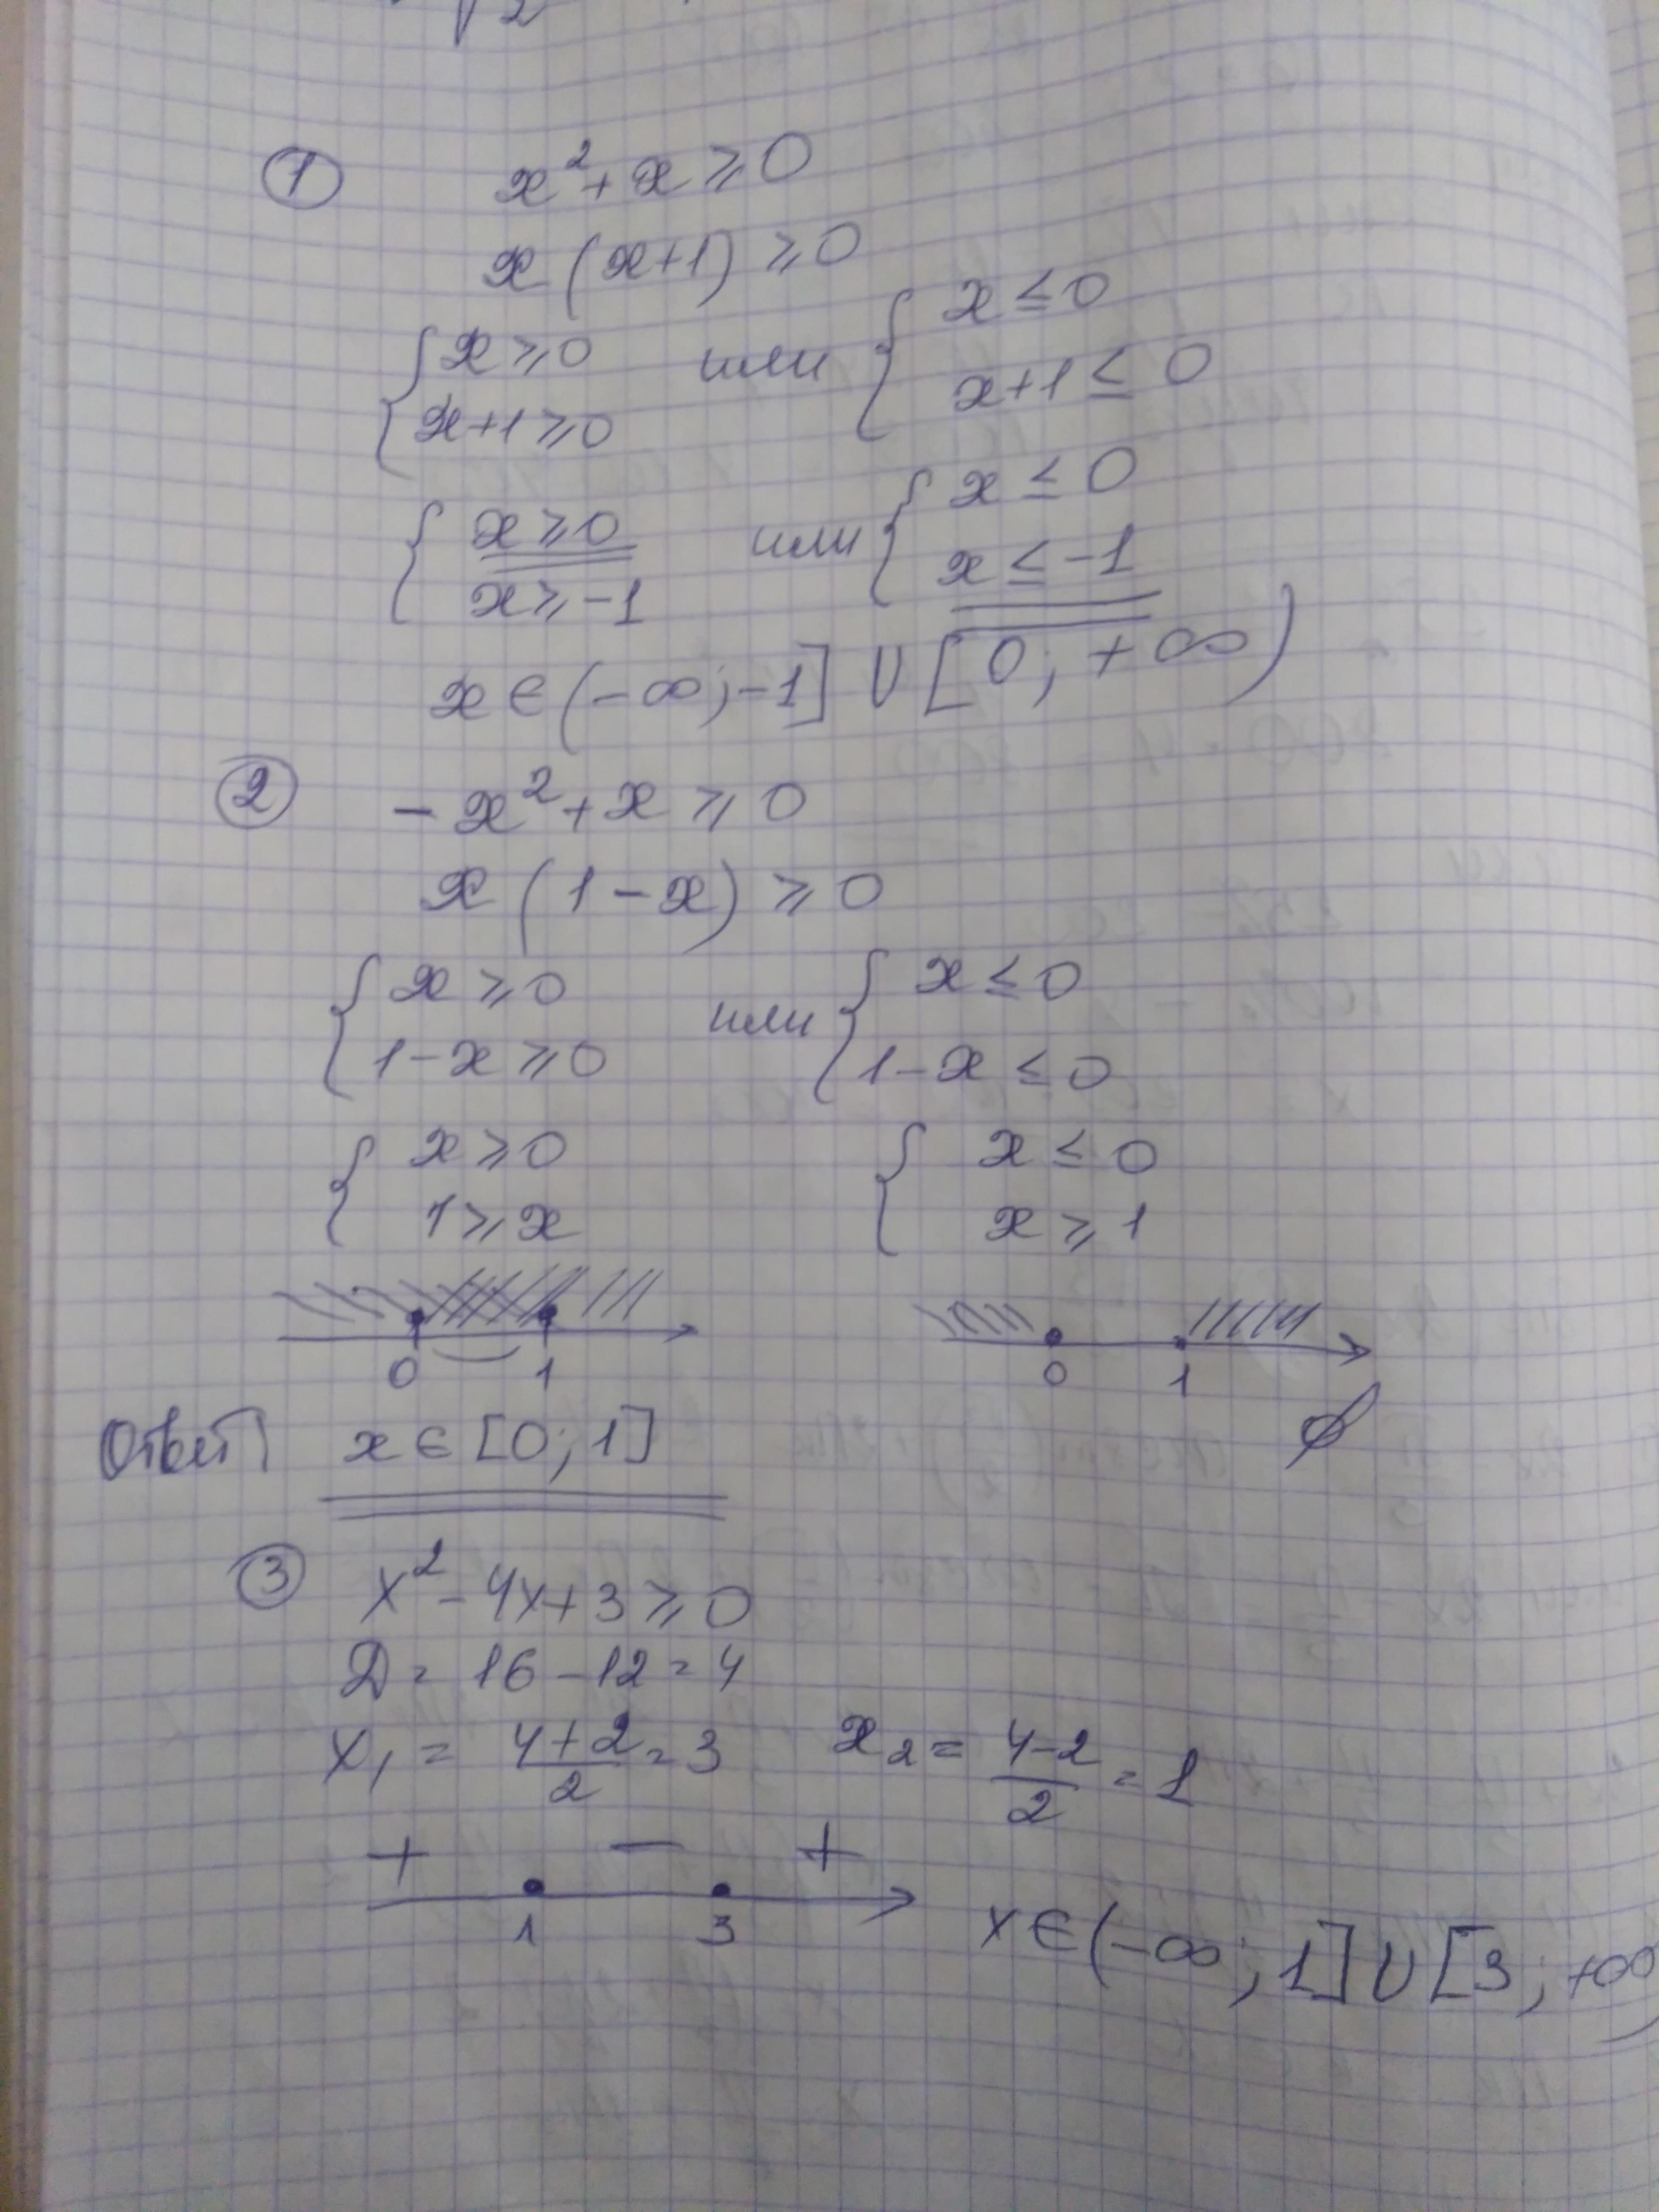 √2
① x² + x ⩾ 0
x (x+1) ⩾ 0
{ x ⩾ 0 или { x ≤ 0
x+1 ⩾ 0 x+1 ≤ 0
{ x ⩾ 0 или { x ≤ 0
x ⩾ -1 x ≤ -1
x ∈ (-∞; -1] ∪ [0; +∞)
② - x² + x ⩾ 0
x (1 - x) ⩾ 0
{ x ⩾ 0 или { x ≤ 0
1 - x ⩾ 0 1 - x ≤ 0
{ x ⩾ 0 { x ≤ 0
1 ⩾ x x ⩾ 1
0 1 0 1
∅
Ответ x ∈ [0; 1]
③ x² - 4x + 3 ⩾ 0
D = 16 - 12 = 4
x₁ = (4+2)/2 = 3 x₂ = (4-2)/2 = 1
+ − +
1 3
x ∈ (-∞; 1] ∪ [3; +∞)